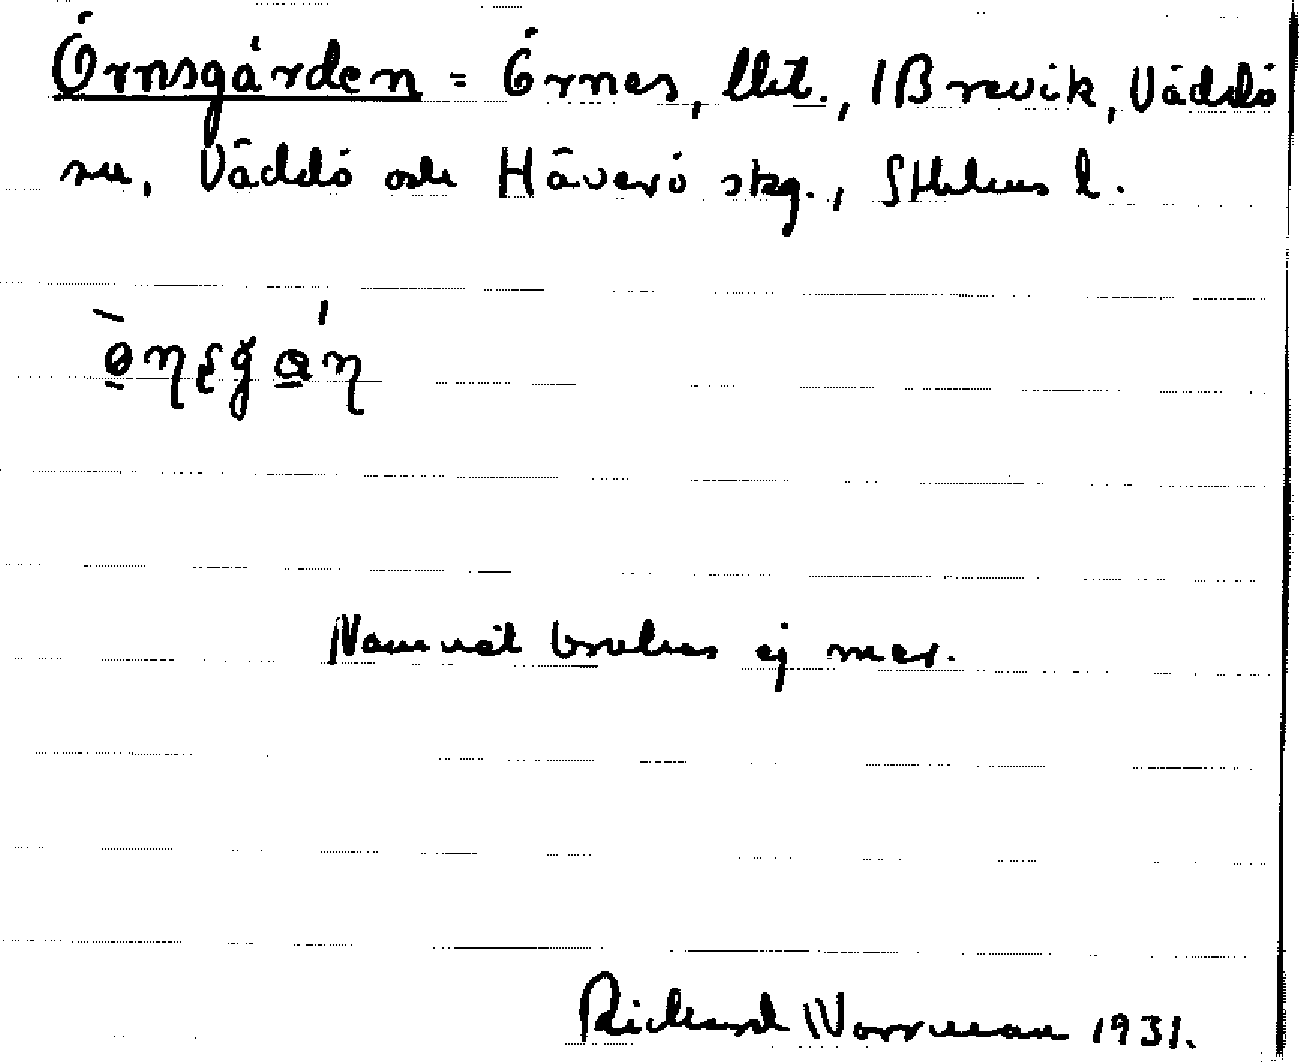 Örnsgården = Örnes, llet., 1 Brevik, Väddö
sn, Väddö och Häverö skg., Sthlms l.
Namnet brukas ej mer.
Richard Norrman 1931.